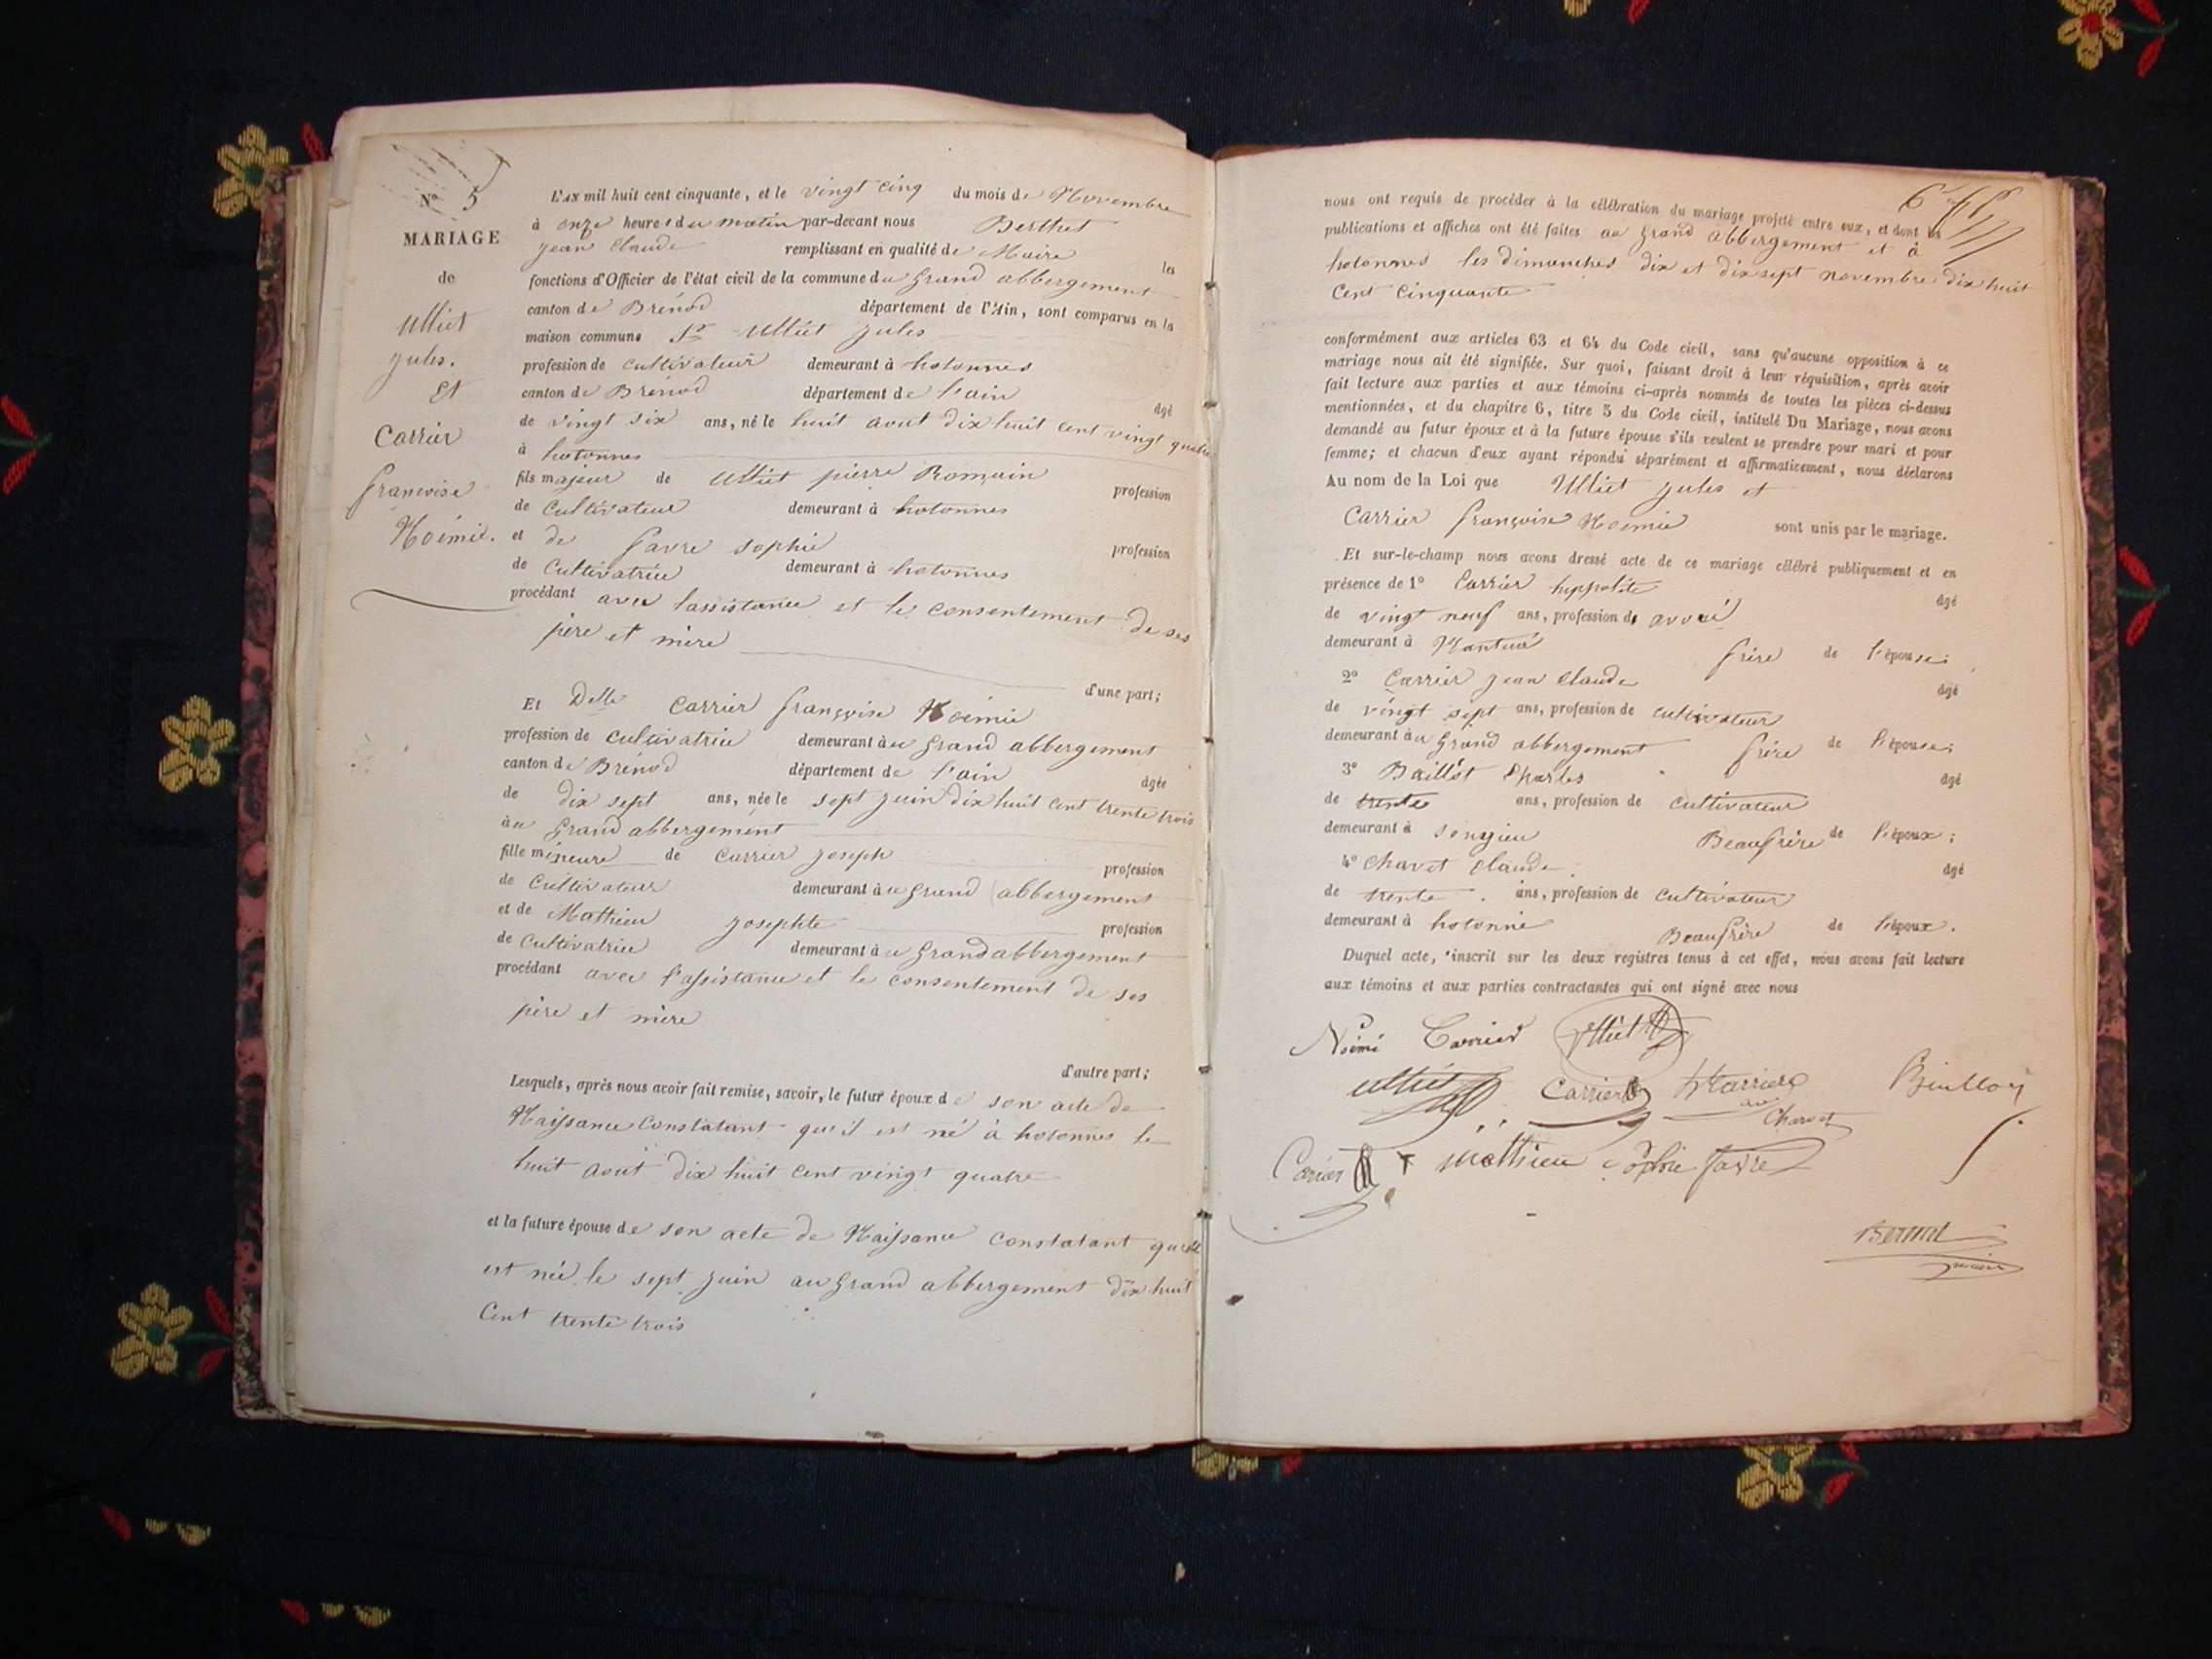 N° 5
MARIAGE
de
Ulliet
jules.
Et
Carrier
françoise
Noémie.
L'AN mil huit cent cinquante, et le vingt cinq du mois de Novembre
à onze heures du matin par-devant nous Berthet
jean Claude remplissant en qualité de Maire les
fonctions d'Officier de l'état civil de la commune du grand abbergement
canton de Brénod département de l'Ain, sont comparus en la
maison commune Sr Ulliet jules
profession de cultivateur demeurant à hotonnes
canton de Brénod département de l'ain âgé
de vingt six ans, né le huit aout dix huit cent vingt quatre
à hotonnes
fils majeur de Ulliet pierre Romain profession
de Cultivateur demeurant à hotonnes
et de favre sophie profession
de Cultivatrice demeurant à hotonnes
procédant avec lassistance et le consentement de ses
père et mère
d'une part;
Et Delle Carrier françoise Noémie
profession de cultivatrice demeurant à u grand abbergement
canton de Brénod département de l'ain âgée
de dix sept ans, née le sept juin dix huit cent trente trois
à u grand abbergement
fille mineure de Carrier joseph profession
de Cultivateur demeurant à u grand abbergement
et de Mathieu josephte profession
de Cultivatrice demeurant à u grand abbergement
procédant avec l'assistance et le consentement de ses
père et mère
d'autre part;
Lesquels, après nous avoir fait remise, savoir, le futur époux de son acte de
Naissance Constatant qu'il est né à hotonnes le
huit aout dix huit cent vingt quatre
et la future épouse de son acte de Naissance constatant quelle
est née le sept juin au grand abbergement dix huit
Cent trente trois
6
nous ont requis de procéder à la célébration du mariage projeté entre eux, et dont les
publications et affiches ont été faites au grand abbergement et à
hotonnes les dimanches dix et dix sept novembre dix huit
Cent Cinquante
conformément aux articles 63 et 64 du Code civil, sans qu'aucune opposition à ce
mariage nous ait été signifiée. Sur quoi, faisant droit à leur réquisition, après avoir
fait lecture aux parties et aux témoins ci-après nommés de toutes les pièces ci-dessus
mentionnées, et du chapitre 6, titre 5 du Code civil, intitulé Du Mariage, nous avons
demandé au futur époux et à la future épouse s'ils veulent se prendre pour mari et pour
femme; et chacun d'eux ayant répondu séparément et affirmativement, nous déclarons
Au nom de la Loi que Ulliet jules et
Carrier françoise Noemie sont unis par le mariage.
Et sur-le-champ nous avons dressé acte de ce mariage célébré publiquement et en
présence de 1° Carrier hyppolite âgé
de vingt neuf ans, profession de avoué
demeurant à Nantua frère de l'épouse;
2° Carrier jean Claude âgé
de vingt sept ans, profession de cultivateur
demeurant à u grand abbergement frère de l'épouse;
3° Baillot Charles âgé
de trente ans, profession de cultivateur
demeurant à songieu Beaufrère de l'époux;
4° Charvet Claude âgé
de trente ans, profession de Cultivateur
demeurant à hotonne Beaufrère de l'époux.
Duquel acte, inscrit sur les deux registres tenus à cet effet, nous avons fait lecture
aux témoins et aux parties contractantes qui ont signé avec nous
Noémi Carrier Ulliet
Ulliet Carrier Carrier
Charvet
Carrier Mathieu Sophie favre